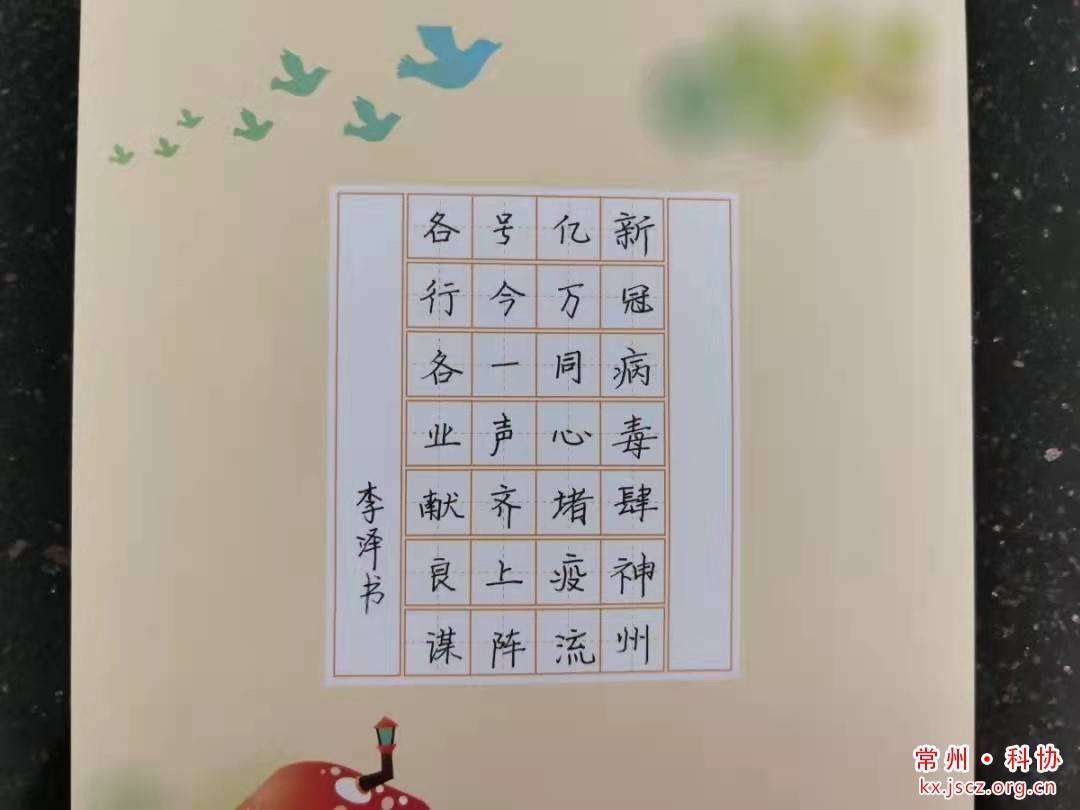 新冠病毒肆神州
亿万同心堵疫流
号今一声齐上阵
各行各业献良谋
李泽书
常州·科协
kx.jscz.org.cn